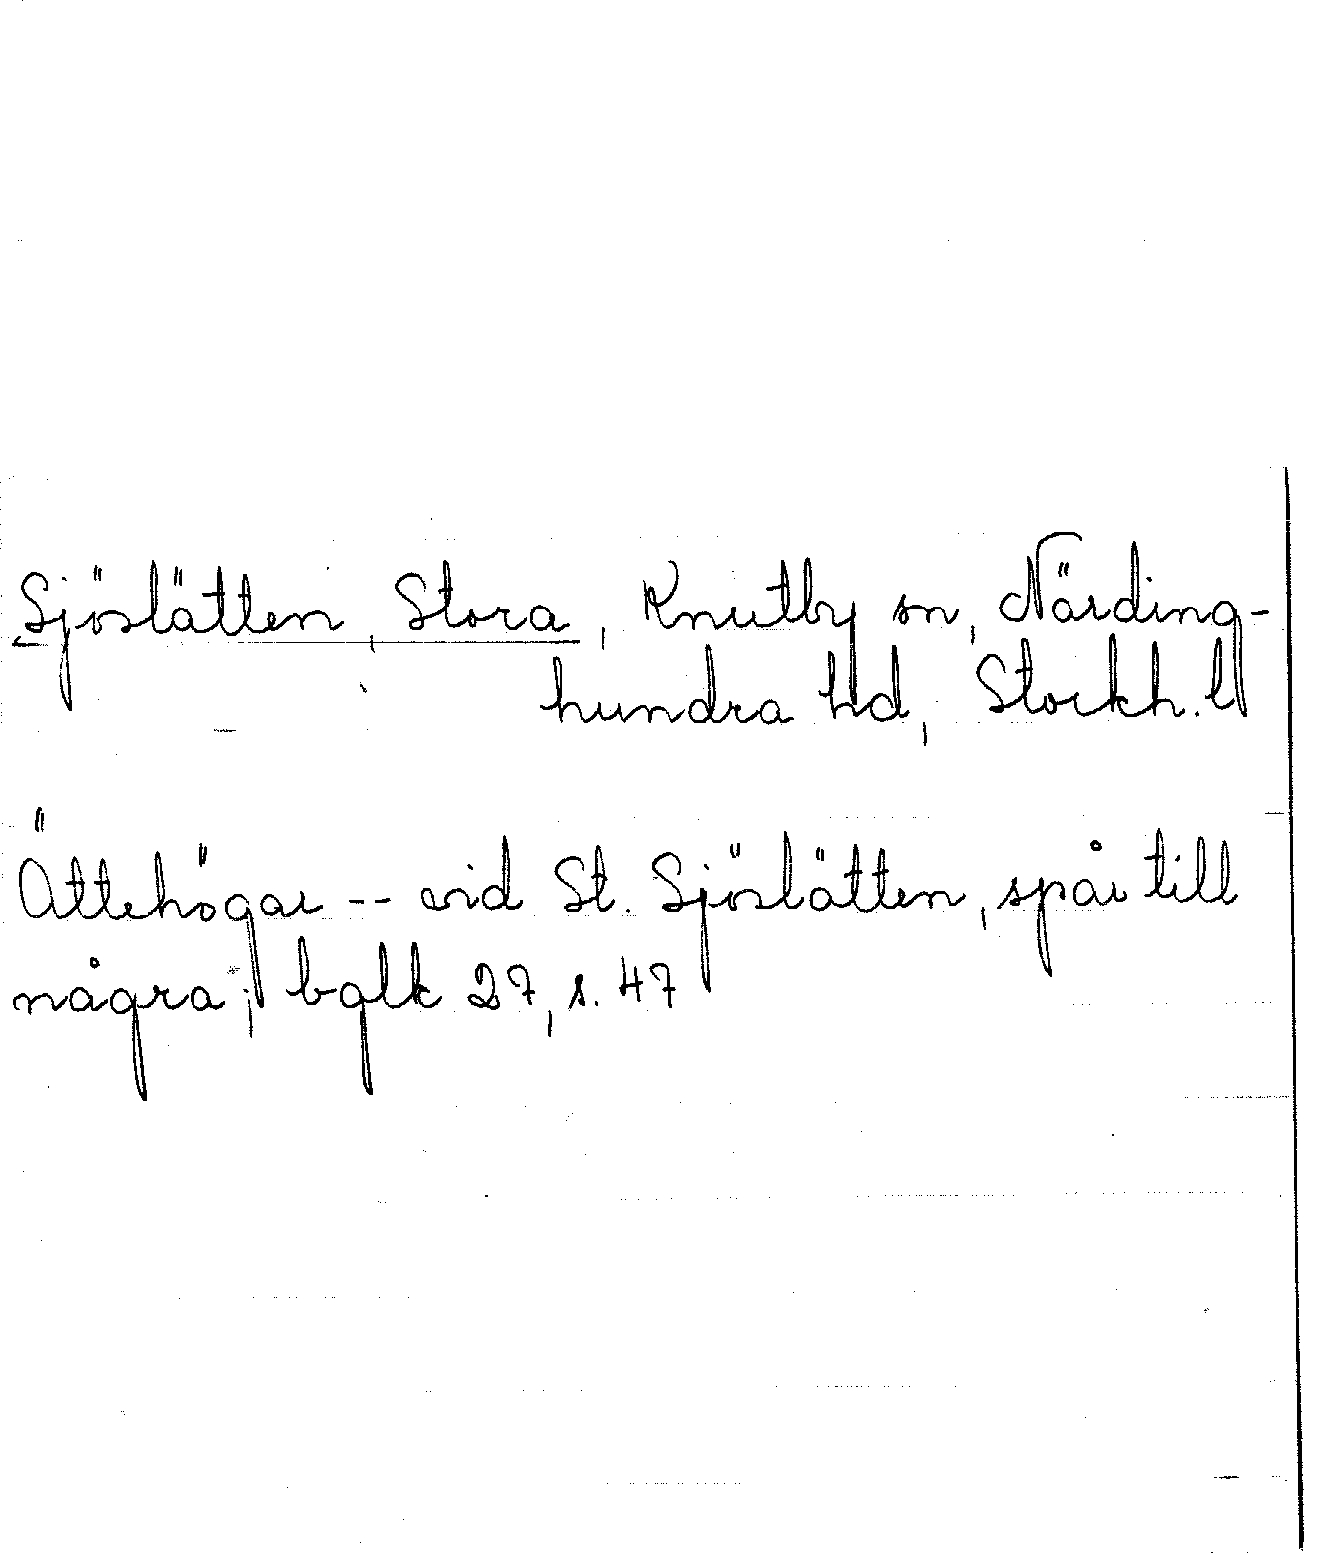 Sjöslätten, Stora, Knutby sn, Närding-
hundra hd, Stockh. l
Ättehögar -- vid St. Sjöslätten, spår till
några; bglk 27, s. 47